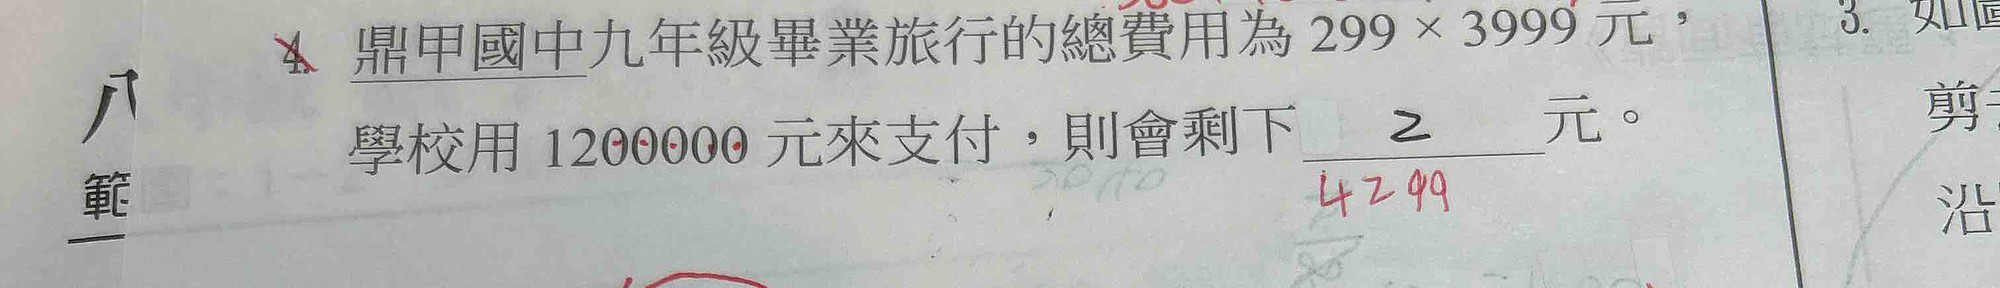 4. 鼎甲國中九年級畢業旅行的總費用為 299 × 3999 元，
學校用 1200000 元來支付，則會剩下 2 元。
4299
八
範
3. 如
剪
沿